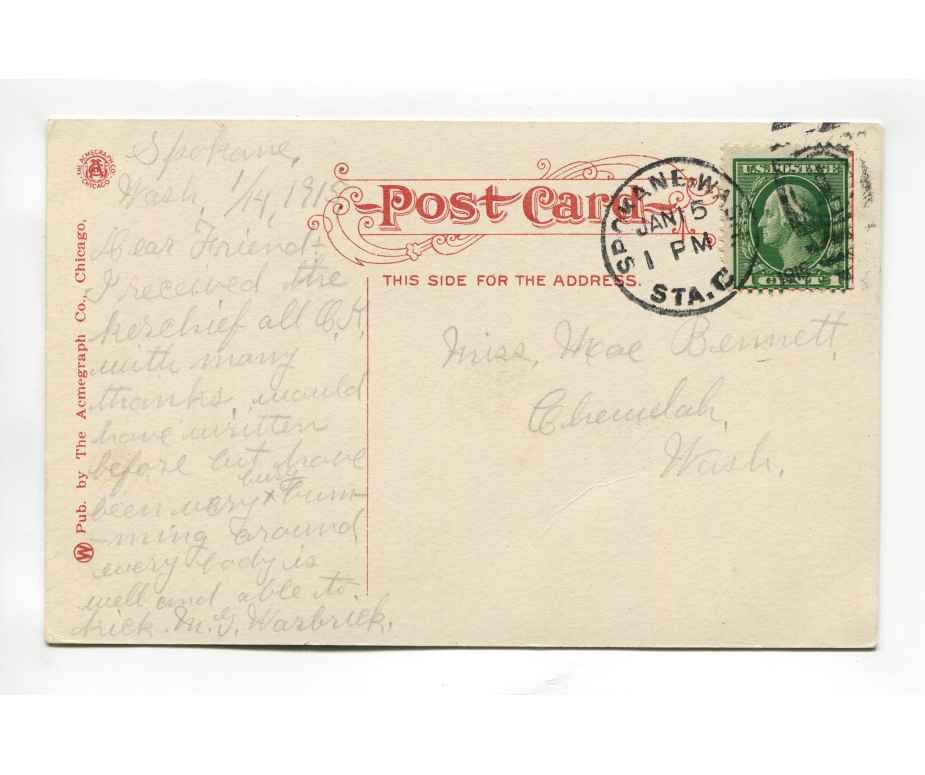 Spokane,
Wash, 1/14, 1918
Dear Friend:-
I received the
kerchief all O.K.
with many
thanks, would
have written
before but have
busy
been very + bum-
-ming around
every body is
well and able to
kick. M.G. Warbrick.
THE ACMEGRAPH CO.
CHICAGO
W Pub. by The Acmegraph Co., Chicago.
Post Card
THIS SIDE FOR THE ADDRESS.
SPOKANE, WASH.
JAN 15
1 PM
STA. C
U.S. POSTAGE
1 CENT 1
Miss, Mae Bennett,
Chewelah,
Wash.